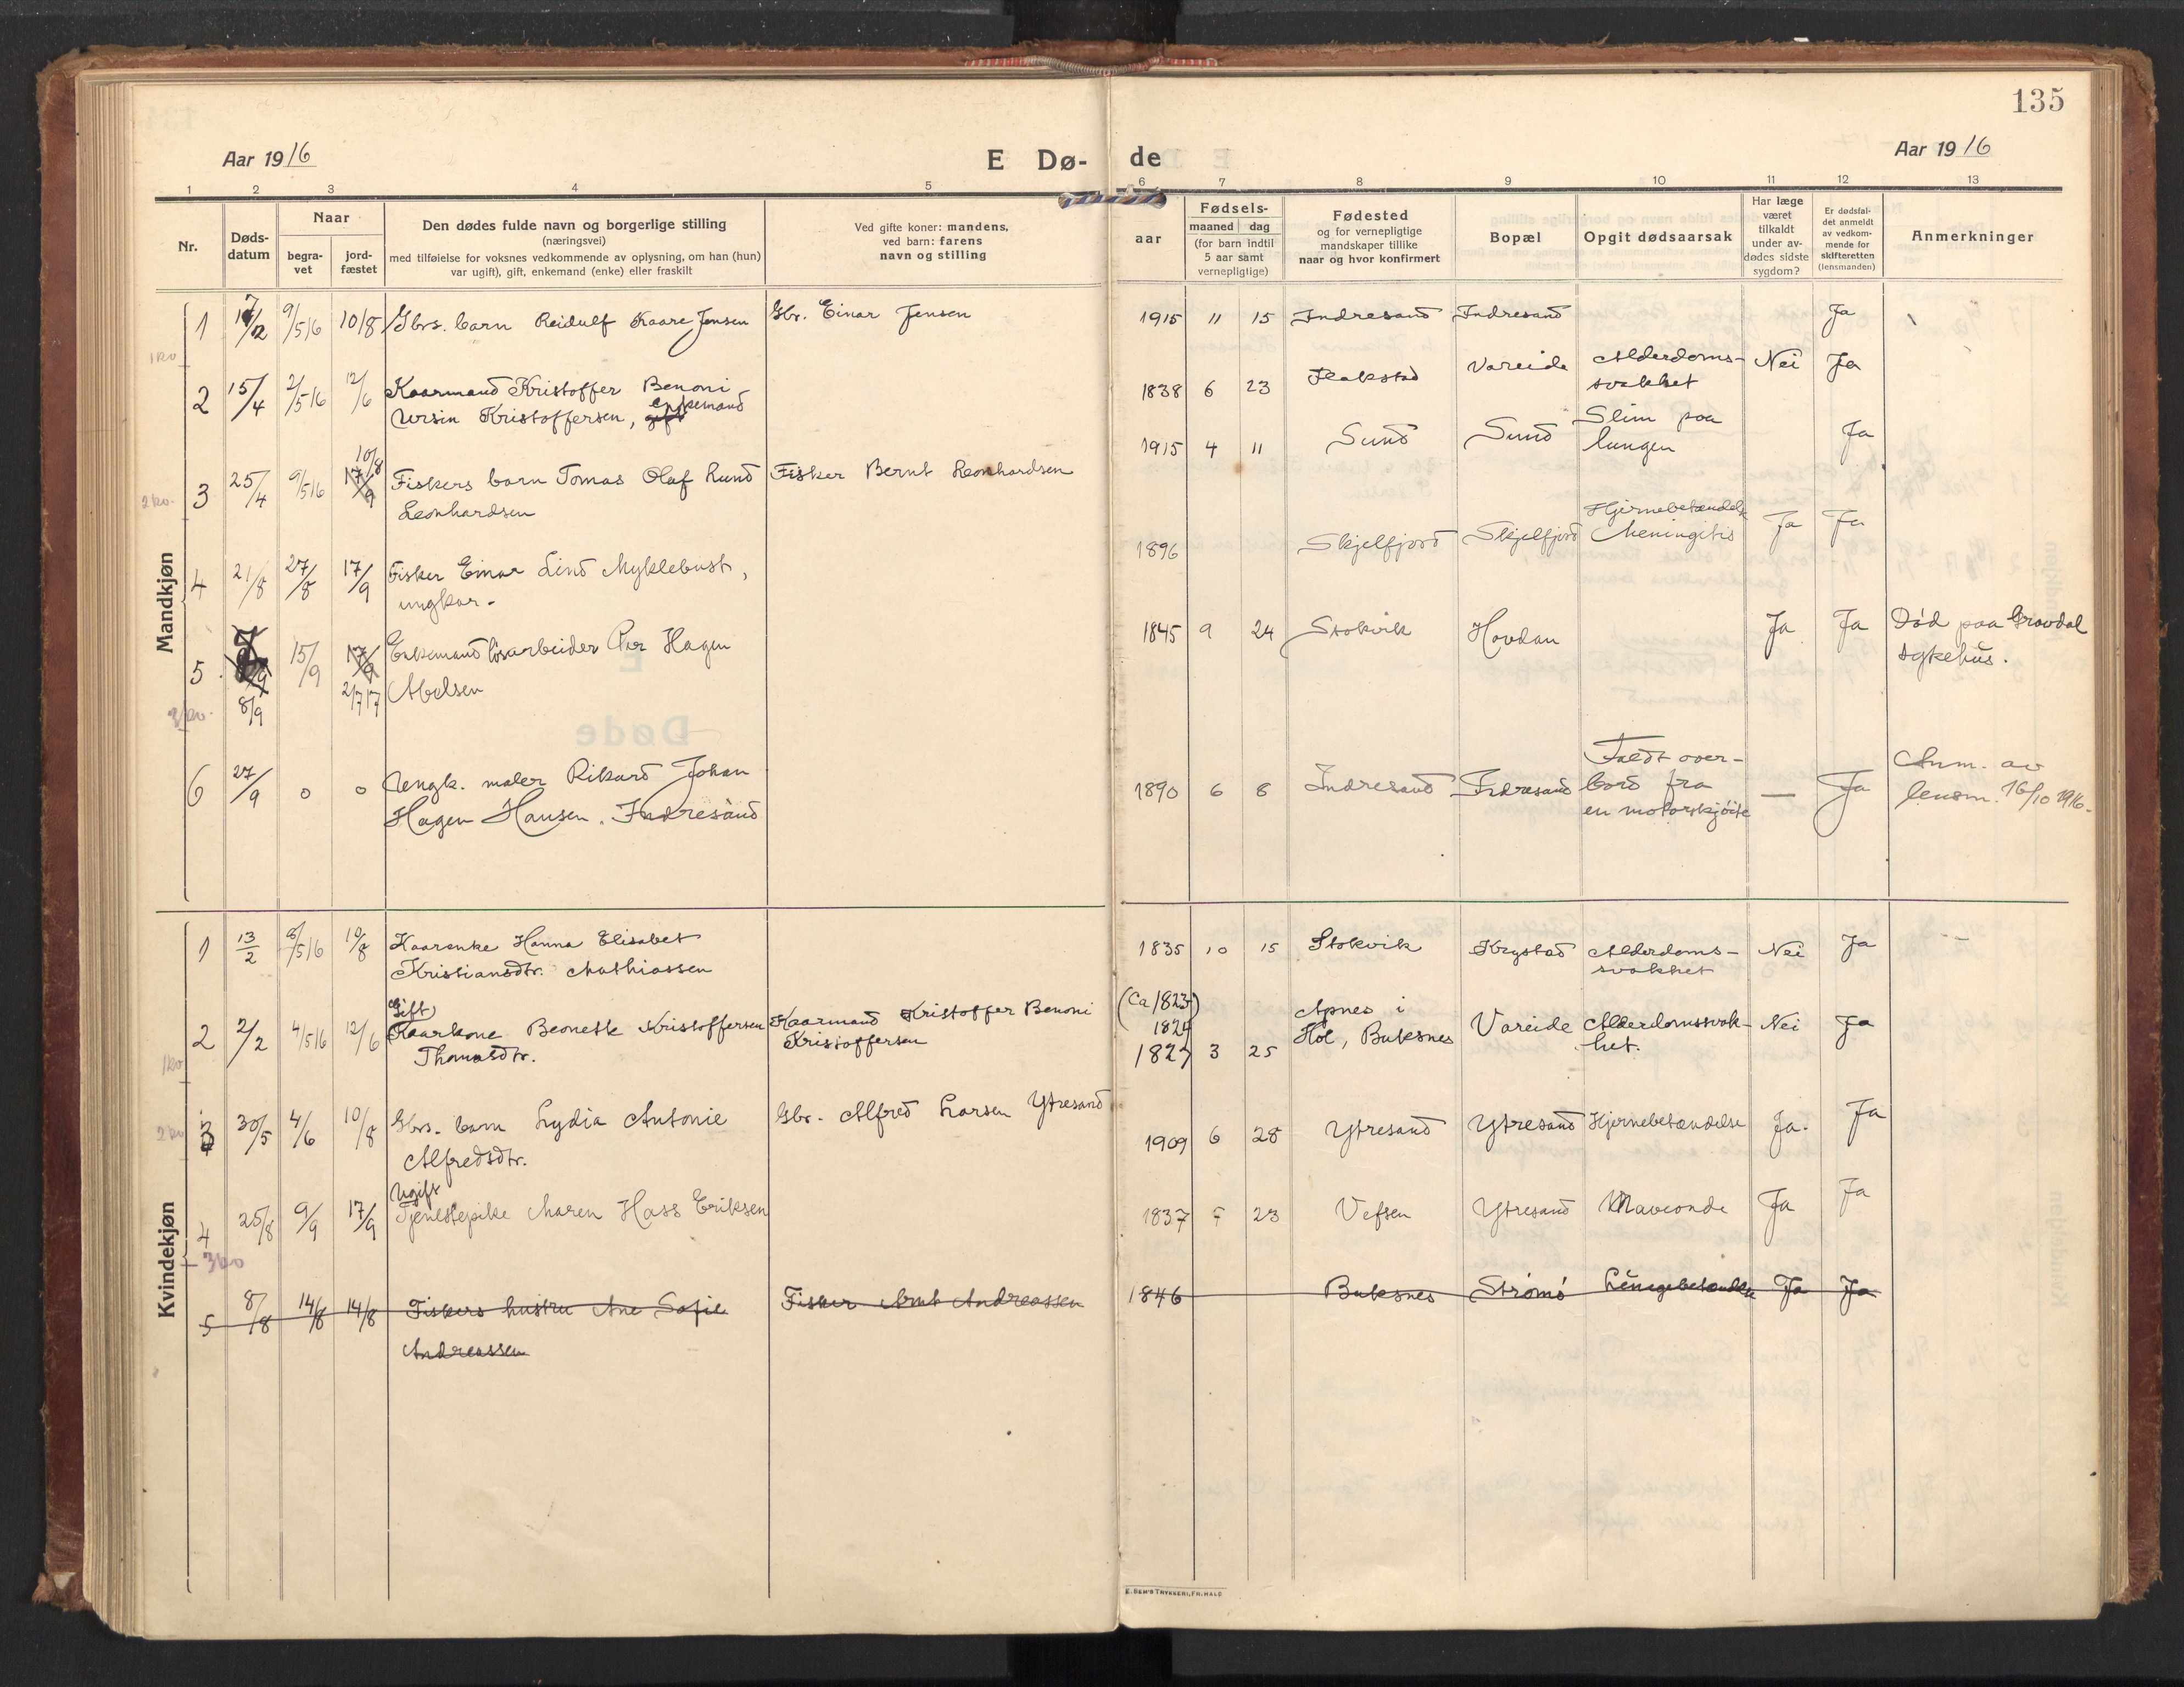 135
Aar 1916
E Dø-
de
Aar 1916
1 2 3 4 5 6 7 8 9 10 11 12 13
Nr.
Døds-
datum
Naar
begra-
vet
jord-
fæstet
Den dødes fulde navn og borgerlige stilling
(næringsvei)
med tilføielse for voksnes vedkommende av oplysning, om han (hun)
var ugift), gift, enkemand (enke) eller fraskilt
Ved gifte koner: mandens,
ved barn: farens
navn og stilling
Fødsels-
aar
maaned dag
(for barn indtil
5 aar samt
vernepligtige)
Fødested
og for vernepligtige
mandskaper tillike
naar og hvor konfirmert
Bopæl
Opgit dødsaarsak
Har læge
været
tilkaldt
under av-
dødes sidste
sygdom?
Er dødsfal-
det anmeldt
av vedkom-
mende for
skifteretten
(lensmanden)
Anmerkninger
Mandkjøn
1 9/5 16 10/8 Gbrs. barn Reidulf Kaare Jensen Gbr. Einar Jensen 1915 11 15 Indresand Indresand Ja
1ko
2 15/4 2/5 16 12/6 Kaarmand Kristoffer Benoni
enkemand
Ursin Kristoffersen, gift
1838 6 23 Flakstad Vareide Alderdoms-
svakhet Nei Ja
2ko.
10/8
3 25/4 9/5 16 17/9 Fiskers barn Tomas Olaf Lund
Leonhardsen
Fisker Bernt Leonhardsen
1915 4 11 Sund Sund Slim paa
lungen Ja
4 21/8 27/8 17/9 Fisker Einar Lind Myklebust,
ungkar.
1896 Skjelfjord Skjelfjord Hjernebetændelse
Meningitis Ja Ja
5 15/9 17/9 Enkemand løsarbeider Per Hagen
8/9 2/7 17 Abelsen
1845 9 24 Stokvik Hovdan Ja Ja Død paa Gravdal
sykehus.
3ko.
6 27/9 o o Ungk. maler Rikard Johan
Hagen Hansen. Indresand
1890 6 8 Indresand Indresand Faldt over-
bord fra
en motorskjøite — Ja Anm. av
lensm. 16/10 1916.
Kvindekjøn
1 13/2 8/5 16 10/8 Kaarenke Hanna Elisabet
Kristiansdtr. Mathiassen
1835 10 15 Stokvik Krystad Alderdoms-
svakhet Nei Ja
Gift
2 2/2 4/5 16 12/6 Kaarkone Beonette Kristoffersen
Thomasdtr.
Kaarmand Kristoffer Benoni
Kristoffersen
(Ca 1823)
1824
1827 3 25 Apnes i
Hol, Buksnes Vareide Alderdomssvak-
het. Nei Ja
1ko
3 30/5 4/6 10/8 Gbrs. barn Lydia Antonie
Alfredsdtr.
Gbr. Alfred Larsen Ytresand
1909 6 28 Ytresand Ytresand Hjernebetændelse Ja. Ja
2ko
Ugift
4 25/8 9/9 17/9 Tjenestepike Maren Hass Eriksen
1837 23 Vefsen Ytresand Maveonde Ja Ja
3ko
5 8/8 14/8 14/8 Fiskers hustru Ane Sofie
Andreassen
Fisker Arnt Andreassen
1846 Buksnes Strømø Lungebetændelse Ja Ja
E. SEM'S TRYKKERI, FR.HALD